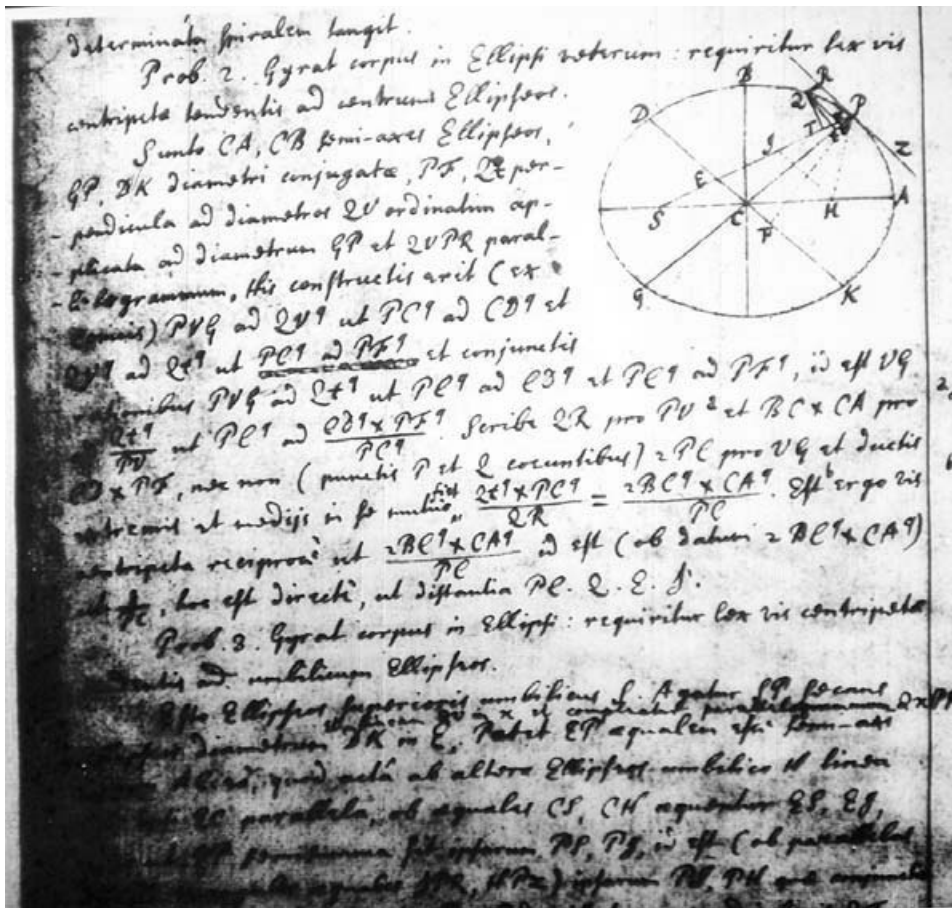 determinata spiralem tangit.
Prob. 2. Gyrat corpus in Ellipsi veterum: requiritur lex vis
centripetæ tendentis ad centrum Ellipseos.
Sunto CA, CB semi-axes Ellipseos,
GP, DK diametri conjugatæ, PF, Qt per-
pendicula ad diametros QV ordinatim ap-
plicata ad diametrum GP et QVPR paral-
lelogrammum, His constructis erit (ex
Conicis) PVG ad QVq ut PCq ad CDq et
QVq ad Qtq ut PCq ad PFq et conjunctis
rationibus PVG ad Qtq ut PCq ad CDq et PCq ad PFq, id est VG
ad Qtq/PV ut PCq ad CDq × PFq/PCq. Scribe QR pro PV a et BC × CA pro a
CD × PF, nec non (punctis P et Q coeuntibus) 2PC pro VG et ductis b
extremis et medijs in se mutuo fiet Qtq × PCq/QR = 2BCq × CAq/PC. Est b ergo vis
centripeta reciprocè ut 2BCq × CAq/PC id est (ob datum 2BCq × CAq)
ut 1/PC, hoc est directè, ut distantia PC. Q. E. J.
Prob. 3. Gyrat corpus in Ellipsi: requiritur lex vis centripetæ
tendentis ad umbilicum Ellipseos.
Esto Ellipseos superioris umbilicus S. Agatur SP secans
Ellipseos diametrum DK in E, Patet EP æqualem esse semi-axi
quod actâ ab altero Ellipseos umbilico H linea
parallela, ob æquales CS, CH æquentur ES, EJ,
semisumma sit ipsarum PS, PJ, id est (ob parallelas
ipsarum PS, PH
B
R
Q
P
D
T
J
Z
E
A
S
C
H
F
G
K